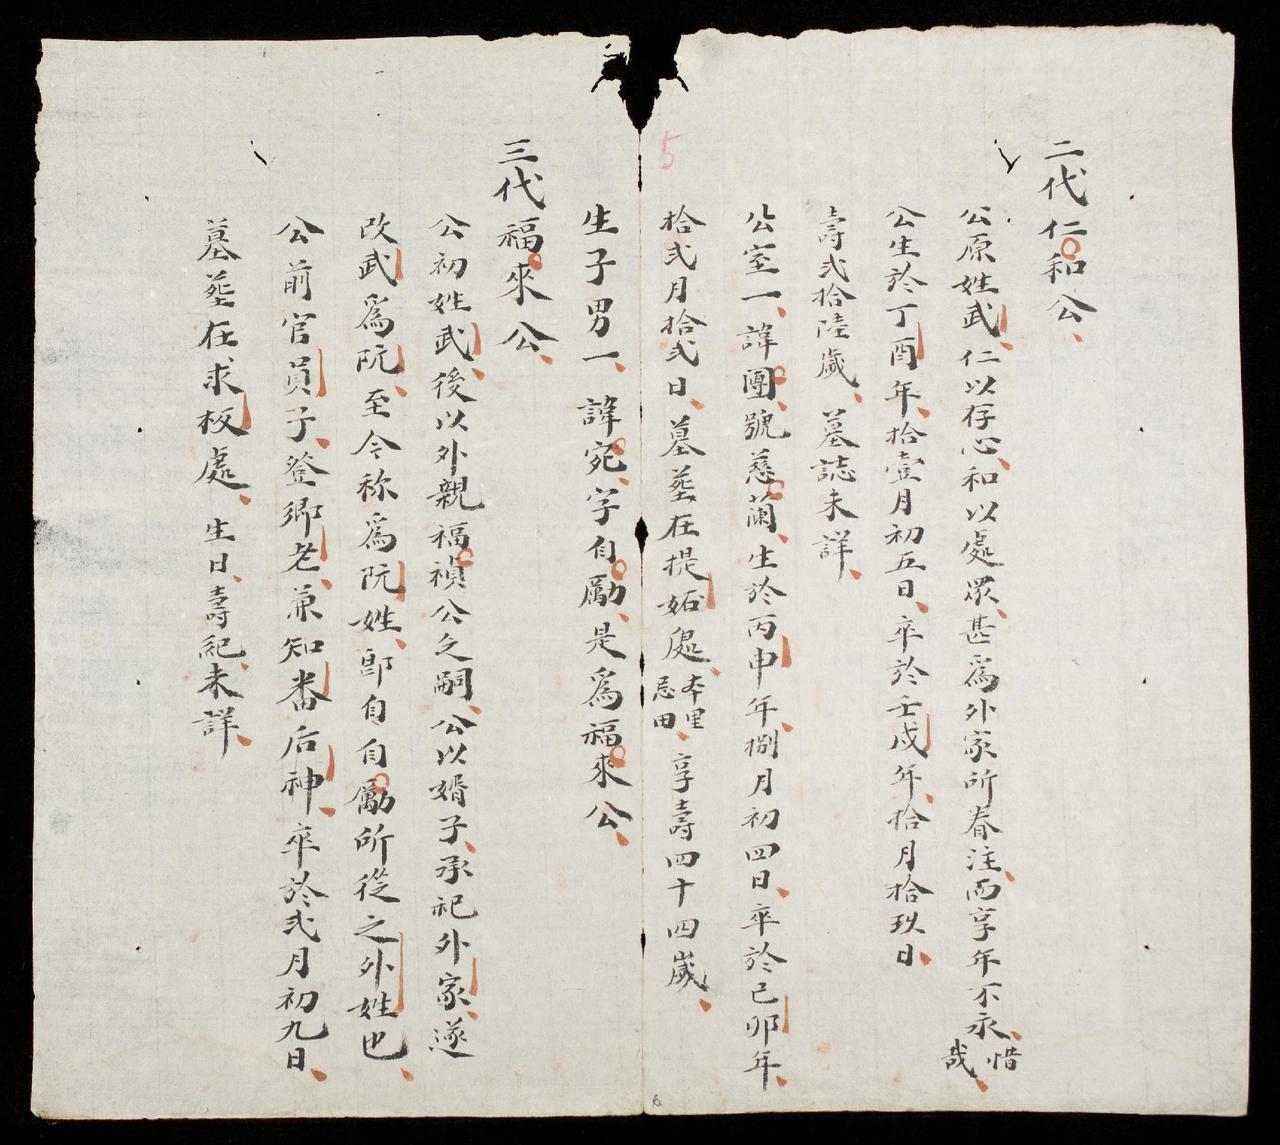 二代仁和公
公原姓武仁以存心和以處眾甚爲外家所眷注而享年不永惜哉
公生於丁酉年拾壹月初五日卒於壬戌年拾月拾玖日
壽弍拾陸歲墓誌未詳
公室一諱團號慈蘭生於丙申年捌月初四日卒於己卯年
5
拾弍月拾弍日墓塟在提妬處本里忌田享壽四十四歲
生子男一諱宛字自勵是爲福來公
三代福來公
公初姓武後以外親福禎公之嗣公以婿子承祀外家遂
改武爲阮至今称爲阮姓即自自勵所從之外姓也
公前官員子登鄉老兼知番后神卒於弍月初九日
墓塟在求板處生日壽紀未詳
6